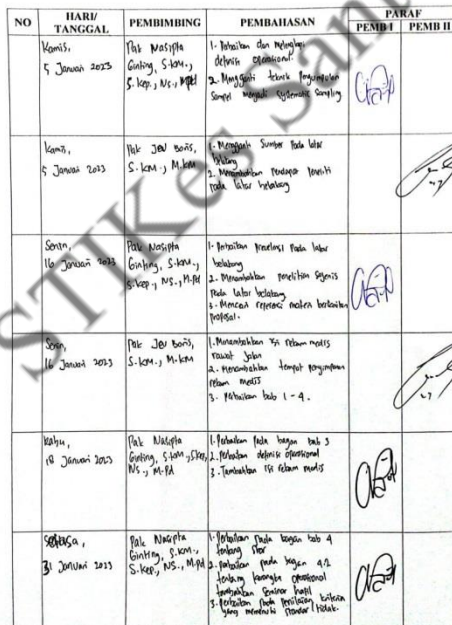 NO HARI/ TANGGAL PEMBIMBING PEMBAHASAN PARAF
PEMB I PEMB II
Kamis,
5 Januari 2023
Pak Nasipta
Ginting, S.KM.,
S.Kep., Ns., M.Pd
1. Perbaikan dan melengkapi
definisi operasional.
2. Mengganti teknik Pengumpulan
Sampel menjadi systematic Sampling
Kamis,
5 Januari 2023
Pak Jev Boris,
S.KM., M.KM
1. Mengganti Sumber Pada latar
belakang
2. Menambahkan Pendapat Peneliti
Pada latar belakang
Senin,
16 Januari 2023
Pak Nasipta
Ginting, S.KM.,
S.Kep., Ns., M.Pd
1. Perbaikan prevelensi Pada latar
belakang
2. Menambahkan penelitian sejenis
Pada latar belakang
3. Mencari referensi materi berkaitan
proposal.
Senin,
16 Januari 2023
Pak Jev Boris,
S.KM., M.KM
1. Menambahkan isi rekam medis
rawat jalan
2. Menambahkan tempat penyimpanan
rekam medis
3. Perbaikan bab 1 - 4.
Rabu,
18 Januari 2023
Pak Nasipta
Ginting, S.KM., S.Kep.,
Ns., M.Pd
1. Perbaikan Pada bagan bab 3
2. Perbaikan definisi operasional
3. Tambahkan isi rekam medis
Selasa,
31 Januari 2023
Pak Nasipta
Ginting, S.KM.,
S.Kep., Ns., M.Pd
1. Perbaikan Pada bagan bab 4
tentang skor
2. Perbaikan pada bagan 4.2
tentang kerangka operasional
tambahkan Seminar hasil
3. Perbaikan pada penilaian kriteria
yang memenuhi standar / tidak.
STIKes San